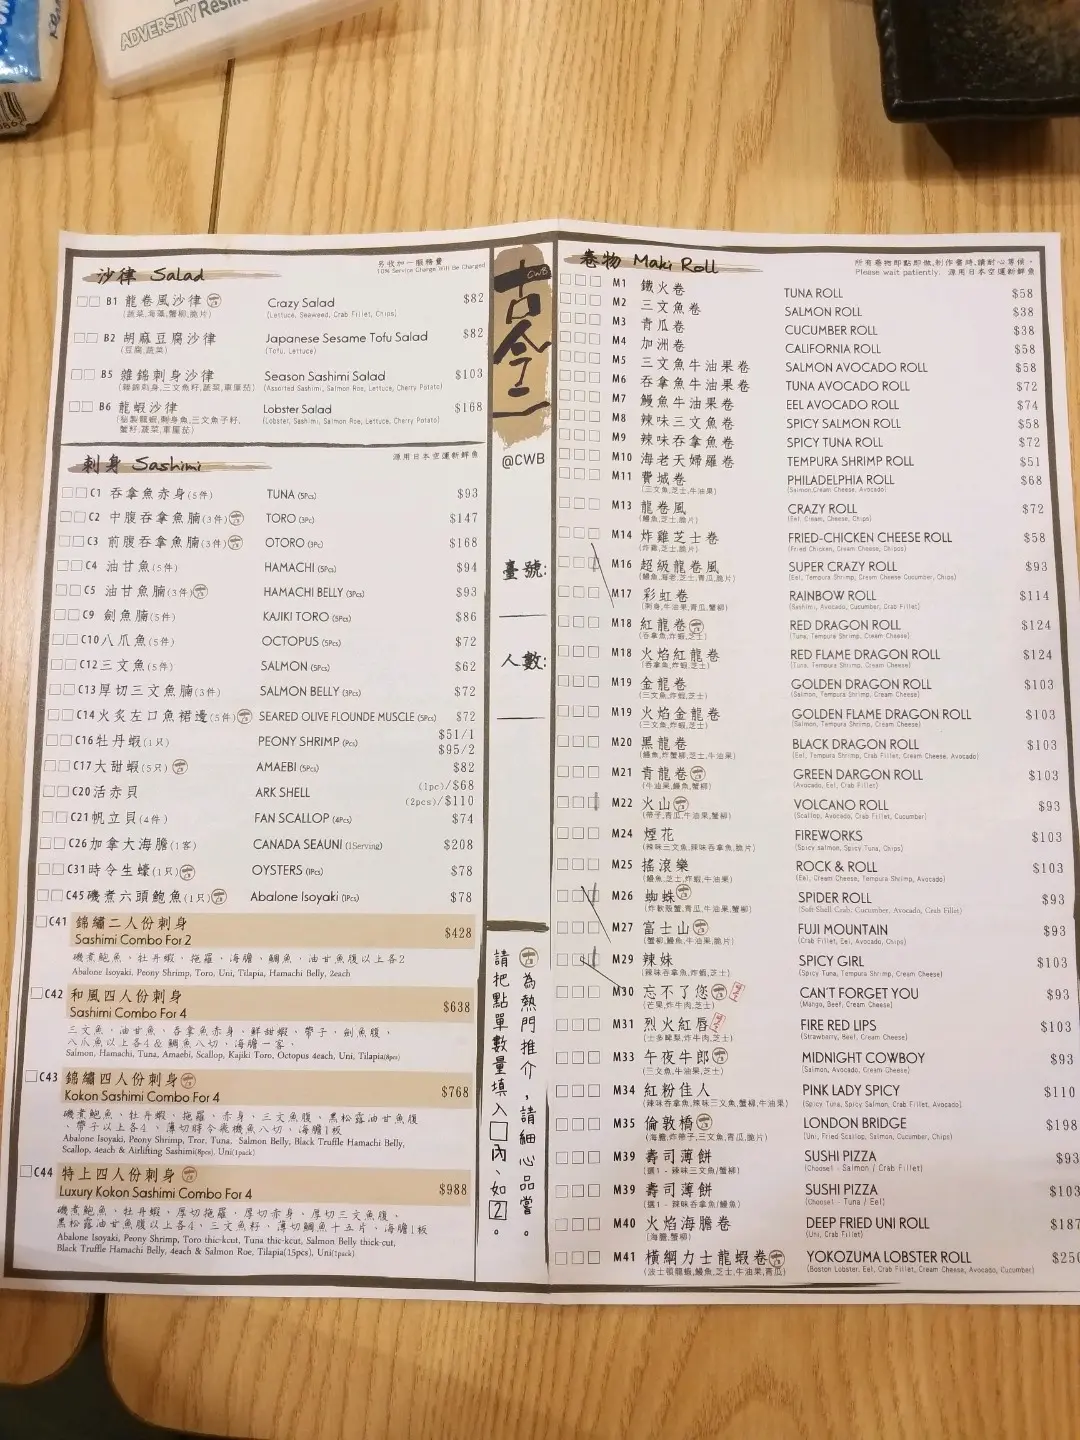 ADVERSITY
沙律 Salad
另收加一服務費
10% Service Charge Will Be Charged
B1 龍卷風沙律 Crazy Salad $82
(蔬菜,海藻,蟹柳,脆片) (Lettuce, Seaweed, Crab Fillet, Chips)
B2 胡麻豆腐沙律 Japanese Sesame Tofu Salad $82
(豆腐,蔬菜) (Tofu, Lettuce)
B5 雜錦刺身沙律 Season Sashimi Salad $103
(雜錦刺身,三文魚籽,蔬菜,車厘茄) (Assorted Sashimi, Salmon Roe, Lettuce, Cherry Potato)
B6 龍蝦沙律 Lobster Salad $168
(秘製龍蝦,刺身魚,三文魚子籽, (Lobster, Sashimi, Salmon Roe, Lettuce, Cherry Potato)
蟹籽,蔬菜,車厘茄)
刺身 Sashimi
源用日本空運新鮮魚
C1 吞拿魚赤身(5件) TUNA (5Pcs) $93
C2 中腹吞拿魚腩(3件) TORO (3Pc) $147
C3 前腹吞拿魚腩(3件) OTORO (3Pc) $168
C4 油甘魚(5件) HAMACHI (5Pcs) $94
C5 油甘魚腩(3件) HAMACHI BELLY (3Pcs) $93
C9 劍魚腩(5件) KAJIKI TORO (5Pcs) $86
C10 八爪魚(5件) OCTOPUS (5Pcs) $72
C12 三文魚(5件) SALMON (5Pcs) $62
C13 厚切三文魚腩(3件) SALMON BELLY (3Pcs) $72
C14 火炙左口魚裙邊(5件) SEARED OLIVE FLOUNDE MUSCLE (5Pcs) $72
C16 牡丹蝦(1只) PEONY SHRIMP (Pcs) $51/1
$95/2
C17 大甜蝦(5只) AMAEBI (5Pcs) $82
C20 活赤貝 ARK SHELL (1pc)/$68
(2pcs)/$110
C21 帆立貝(4件) FAN SCALLOP (4Pcs) $74
C26 加拿大海膽(1客) CANADA SEAUNI (1Serving) $208
C31 時令生蠔(1只) OYSTERS (1Pcs) $78
C45 磯煮六頭鮑魚(1只) Abalone Isoyaki (1Pcs) $78
C41 錦繡二人份刺身
Sashimi Combo For 2 $428
磯煮鮑魚、牡丹蝦、拖羅、海膽、鯛魚、油甘魚腹以上各2
Abalone Isoyaki, Peony Shrimp, Toro, Uni, Tilapia, Hamachi Belly, 2each
C42 和風四人份刺身
Sashimi Combo For 4 $638
三文魚、油甘魚、吞拿魚赤身、鮮甜蝦、帶子、劍魚腹、
八爪魚以上各4 & 鯛魚八切、海膽一客、
Salmon, Hamachi, Tuna, Amaebi, Scallop, Kajiki Toro, Octopus 4each, Uni, Tilapia(8pcs)
C43 錦繡四人份刺身
Kokon Sashimi Combo For 4 $768
磯煮鮑魚、牡丹蝦、拖羅、赤身、三文魚腹、黑松露油甘魚腹
、帶子以上各4、薄切時令飛機魚八切、海膽1板
Abalone Isoyaki, Peony Shrimp, Tror, Tuna, Salmon Belly, Black Truffle Hamachi Belly,
Scallop, 4each & Airlifting Sashimi(8pcs), Uni(1pack)
C44 特上四人份刺身
Luxury Kokon Sashimi Combo For 4 $988
磯煮鮑魚、牡丹蝦、厚切拖羅、厚切赤身、厚切三文魚腹、
黑松露油甘魚腹以上各4、三文魚籽、薄切鯛魚十五片、海膽1板
Abalone Isoyaki, Peony Shrimp, Toro thic-kcut, Tuna thic-kcut, Salmon Belly thick-cut,
Black Truffle Hamachi Belly, 4each & Salmon Roe, Tilapia(15pcs), Uni(1pack)
CWB
古今二
@CWB
臺號:
人數:
為熱門推介,請細心品嘗。
請把點單數量填入□內、如2。
卷物 Maki Roll
所有卷物即點即做,制作需時,請耐心等候。
Please wait patiently. 源用日本空運新鮮魚
M1 鐵火卷 TUNA ROLL $58
M2 三文魚卷 SALMON ROLL $38
M3 青瓜卷 CUCUMBER ROLL $38
M4 加洲卷 CALIFORNIA ROLL $58
M5 三文魚牛油果卷 SALMON AVOCADO ROLL $58
M6 吞拿魚牛油果卷 TUNA AVOCADO ROLL $72
M7 鰻魚牛油果卷 EEL AVOCADO ROLL $74
M8 辣味三文魚卷 SPICY SALMON ROLL $58
M9 辣味吞拿魚卷 SPICY TUNA ROLL $72
M10 海老天婦羅卷 TEMPURA SHRIMP ROLL $51
M11 費城卷 PHILADELPHIA ROLL $68
(三文魚,芝士,牛油果) (Salmon,Cream Cheese, Avocado)
M13 龍卷風 CRAZY ROLL $72
(鰻魚,芝士,脆片) (Eel, Cream, Cheese, Chips)
M14 炸雞芝士卷 FRIED-CHICKEN CHEESE ROLL $58
(炸雞,芝士,脆片) (Fried Chicken, Cream Cheese, Chipos)
M16 超級龍卷風 SUPER CRAZY ROLL $93
(鰻魚,海老,芝士,青瓜,脆片) (Eel, Tempura Shrimp, Cream Cheese Cucumber, Chips)
M17 彩虹卷 RAINBOW ROLL $114
(刺身,牛油果,青瓜,蟹柳) (Sashimi, Avocado, Cucumber, Crab Fillet)
M18 紅龍卷 RED DRAGON ROLL $124
(吞拿魚,炸蝦,芝士) (Tuna, Tempura Shrimp, Cream Cheese)
M18 火焰紅龍卷 RED FLAME DRAGON ROLL $124
(吞拿魚,炸蝦,芝士) (Tuna, Tempura Shrimp, Cream Cheese)
M19 金龍卷 GOLDEN DRAGON ROLL $103
(三文魚,炸蝦,芝士) (Salmon, Tempura Shrimp, Cream Cheese)
M19 火焰金龍卷 GOLDEN FLAME DRAGON ROLL $103
(三文魚,炸蝦,芝士) (Salmon, Tempura Shrimp, Cream Cheese)
M20 黑龍卷 BLACK DRAGON ROLL $103
(鰻魚,炸蟹柳,芝士,牛油果) (Eel, Tempura Shrimp, Crab Fillet, Cream Cheese, Avocado)
M21 青龍卷 GREEN DARGON ROLL $103
(牛油果,鰻魚,蟹柳) (Avocado, Eel, Crab Fillet)
M22 火山 VOLCANO ROLL $93
(帶子,青瓜,牛油果,蟹柳) (Scallop, Avocado, Crab Fillet, Cucumber)
M24 煙花 FIREWORKS $103
(辣味三文魚,辣味吞拿魚,脆片) (Spicy salmon, Spicy Tuna, Chips)
M25 搖滾樂 ROCK & ROLL $103
(鰻魚,芝士,炸蝦,牛油果) (Eel, Cream Cheese, Tempura Shrimp, Avocado)
M26 蜘蛛 SPIDER ROLL $93
(炸軟殼蟹,青瓜,牛油果,蟹柳) (Soft Shell Crab, Cucumber, Avocado, Crab Fillet)
M27 富士山 FUJI MOUNTAIN $93
(蟹柳,鰻魚,牛油果,脆片) (Crab Fillet, Eel, Avocado, Chips)
M29 辣妹 SPICY GIRL $103
(辣味吞拿魚,炸蝦,芝士) (Spicy Tuna, Tempura Shrimp, Cream Cheese)
M30 忘不了您 CAN'T FORGET YOU $93
(芒果,炸牛肉,芝士) (Mango, Beef, Cream Cheese)
M31 烈火紅唇 FIRE RED LIPS $103
(士多啤梨,炸牛肉,芝士) (Strawberry, Beef, Cream Cheese)
M33 午夜牛郎 MIDNIGHT COWBOY $93
(三文魚,牛油果,芝士) (Salmon, Avocado, Cream Cheese)
M34 紅粉佳人 PINK LADY SPICY $110
(辣味吞拿魚,辣味三文魚,蟹柳,牛油果) (Spicy Tuna, Spicy Salmon, Crab Fillet, Avocado)
M35 倫敦橋 LONDON BRIDGE $198
(海膽,炸帶子,三文魚,青瓜,脆片) (Uni, Fried Scallop, Salmon, Cucumber, Chips)
M39 壽司薄餅 SUSHI PIZZA $93
(選1 - 辣味三文魚/蟹柳) (Choose1 - Salmon / Crab Fillet)
M39 壽司薄餅 SUSHI PIZZA $103
(選1 - 辣味吞拿魚/鰻魚) (Choose1 - Tuna / Eel)
M40 火焰海膽卷 DEEP FRIED UNI ROLL $187
(海膽,蟹柳) (Uni, Crab Fillet)
M41 橫綱力士龍蝦卷 YOKOZUMA LOBSTER ROLL
(波士頓龍蝦,鰻魚,芝士,牛油果,青瓜) (Boston Lobster, Eel, Crab Fillet, Cream Cheese, Avocado, Cucumber)